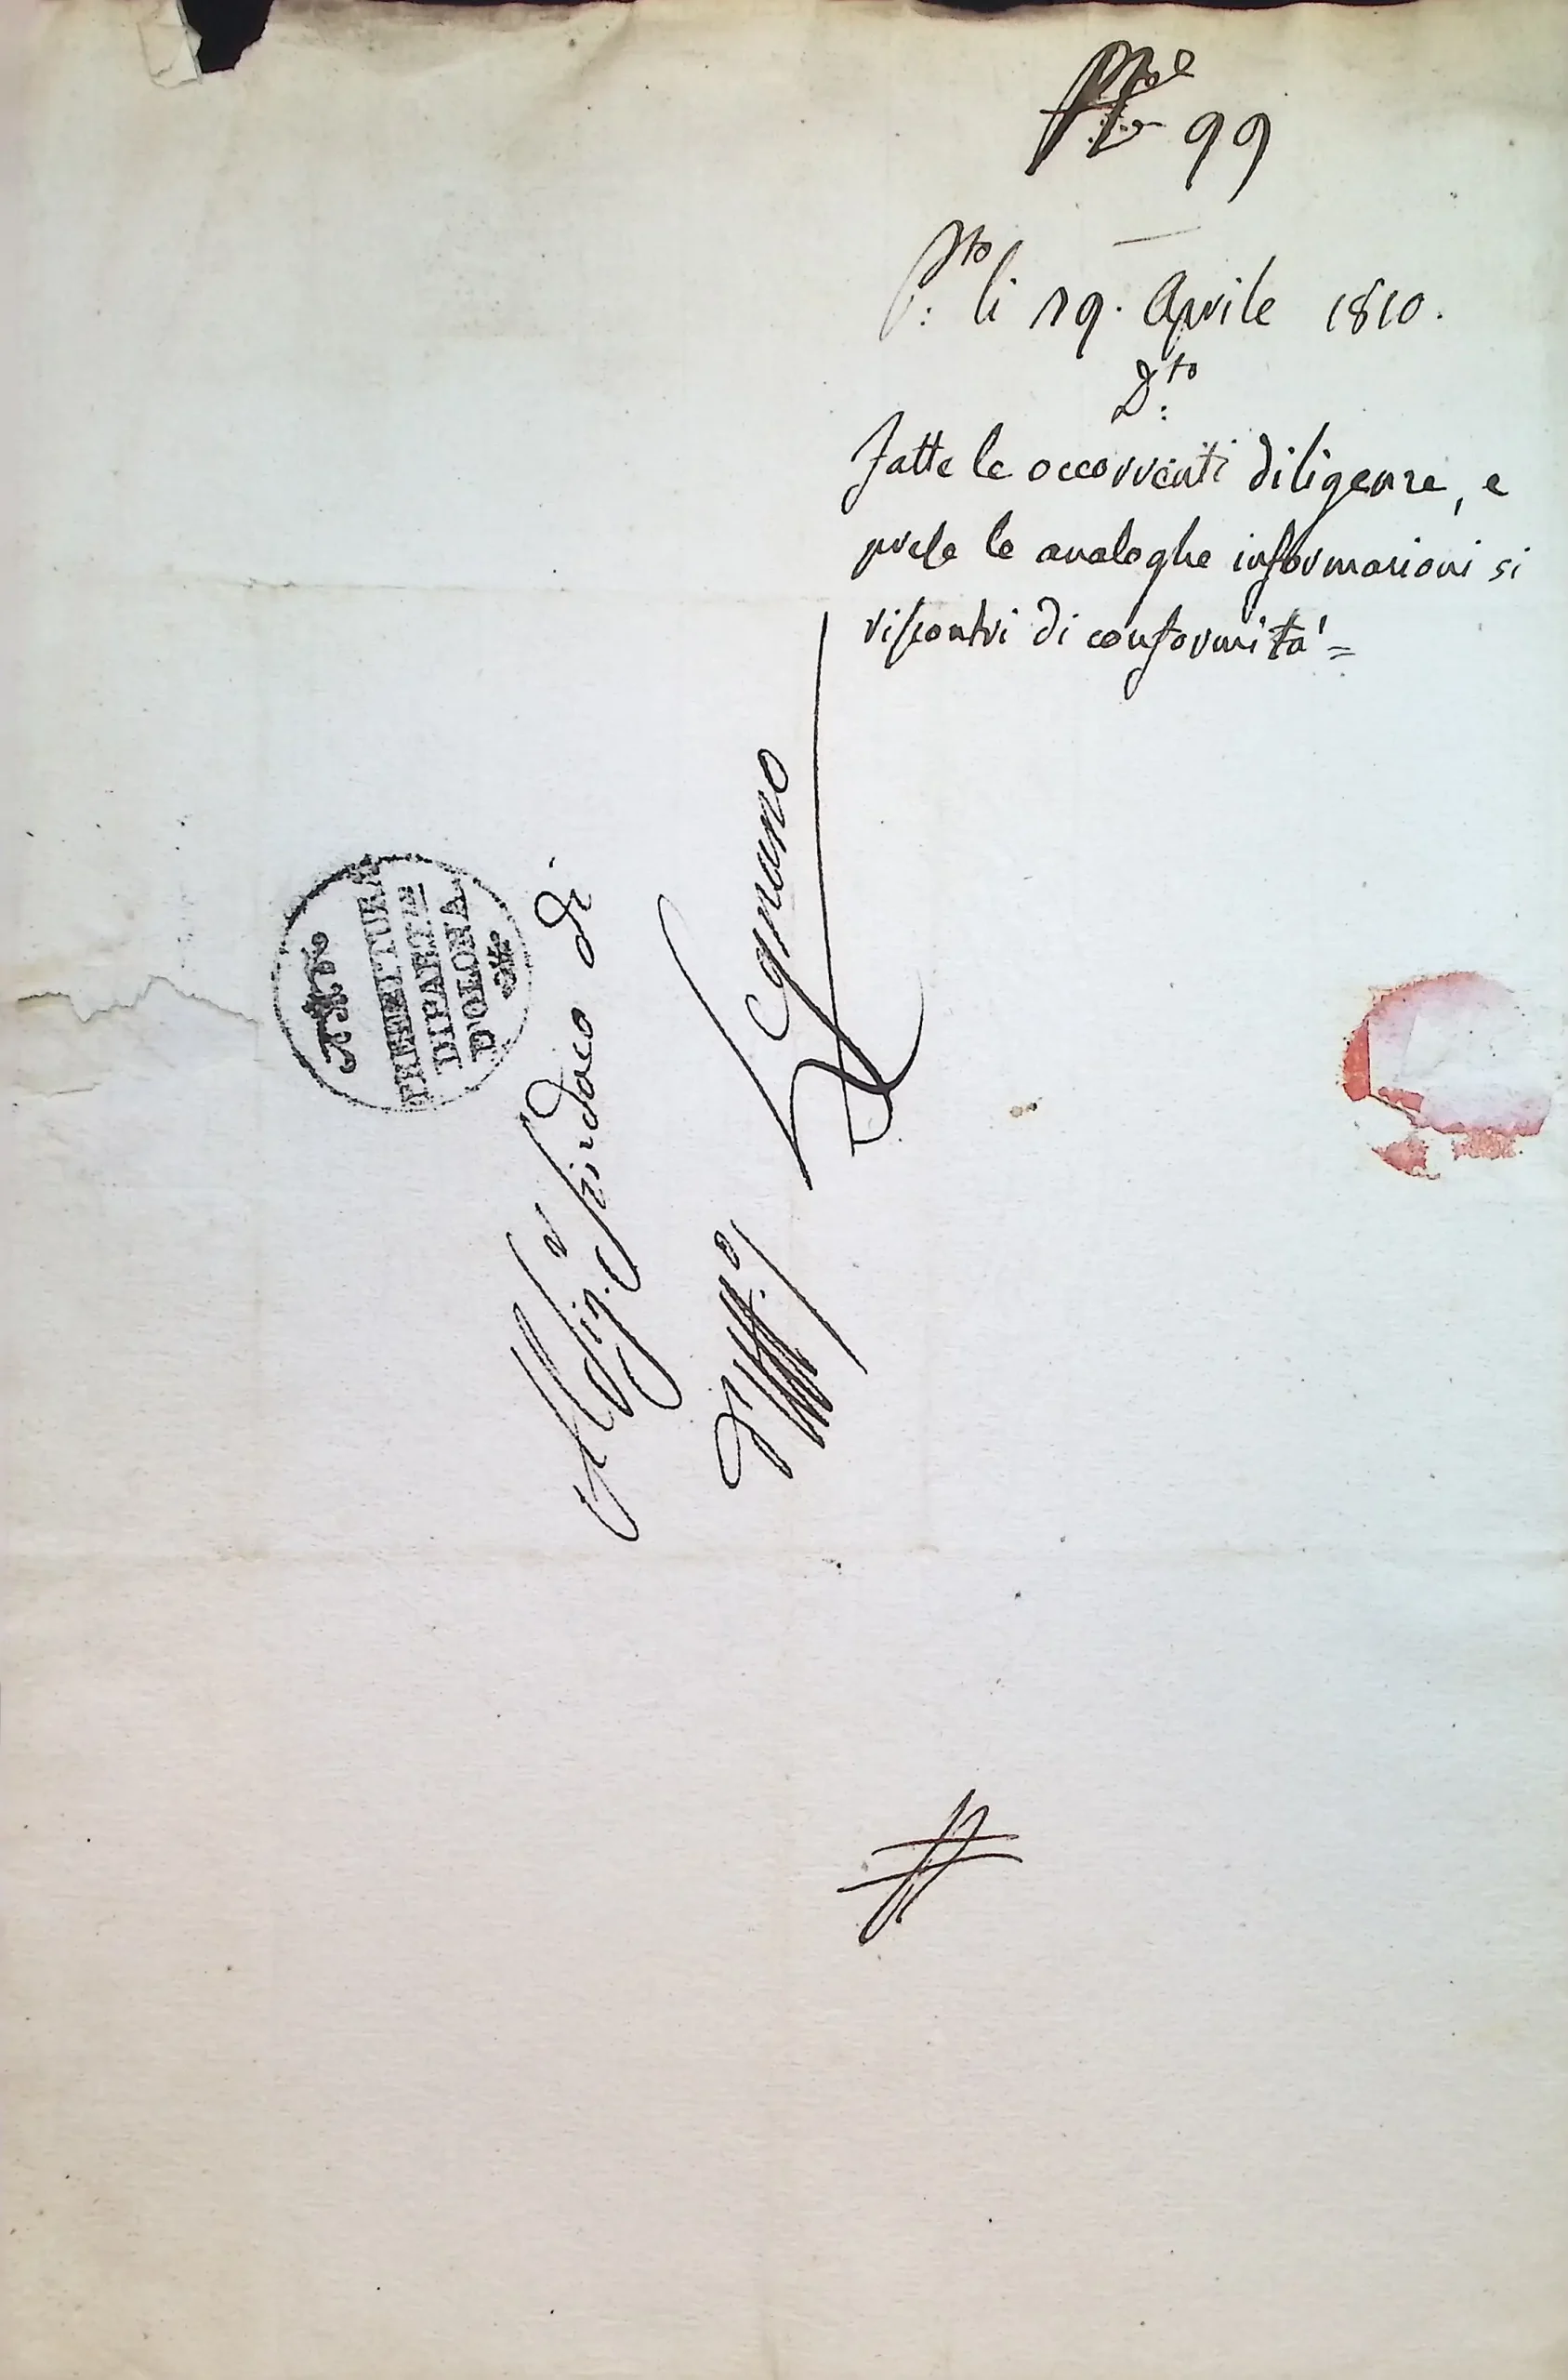 99
P:to li 19. Aprile 1810.
D:to
Fatte le occorrenti diligenze, e
prese le analoghe informazioni si
riscontri di conformità =
PREFETTURA
DIPARTE
D'OLONA
Al Sig.r Sindaco di
D'Uff.o Legnano